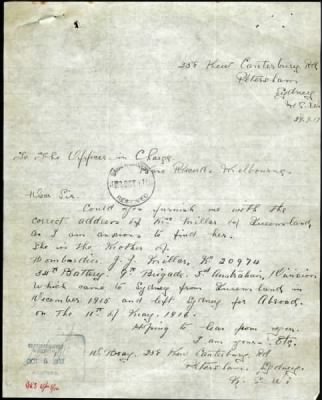 258 New Canterbury Rd
Petersham
Sydney
N.S.W.
To The Officer in Charge
Base Records Melbourne
Dear Sir.
Could you furnish me with the
correct address of Mrs Miller of Queensland
as I am anxious to find her.
She is the Mother of
Bombardier J. J. Miller, No 20974
Battery Brigade. Australian Division
Which came to Sydney from Queensland in
December 1915 and left Sydney for Abroad
on The 11th of May. 1916.
Hoping to hear from you.
I am yours. Etc.
W. Bray. 258 New Canterbury Rd
Petersham. Sydney.
N. S. W.